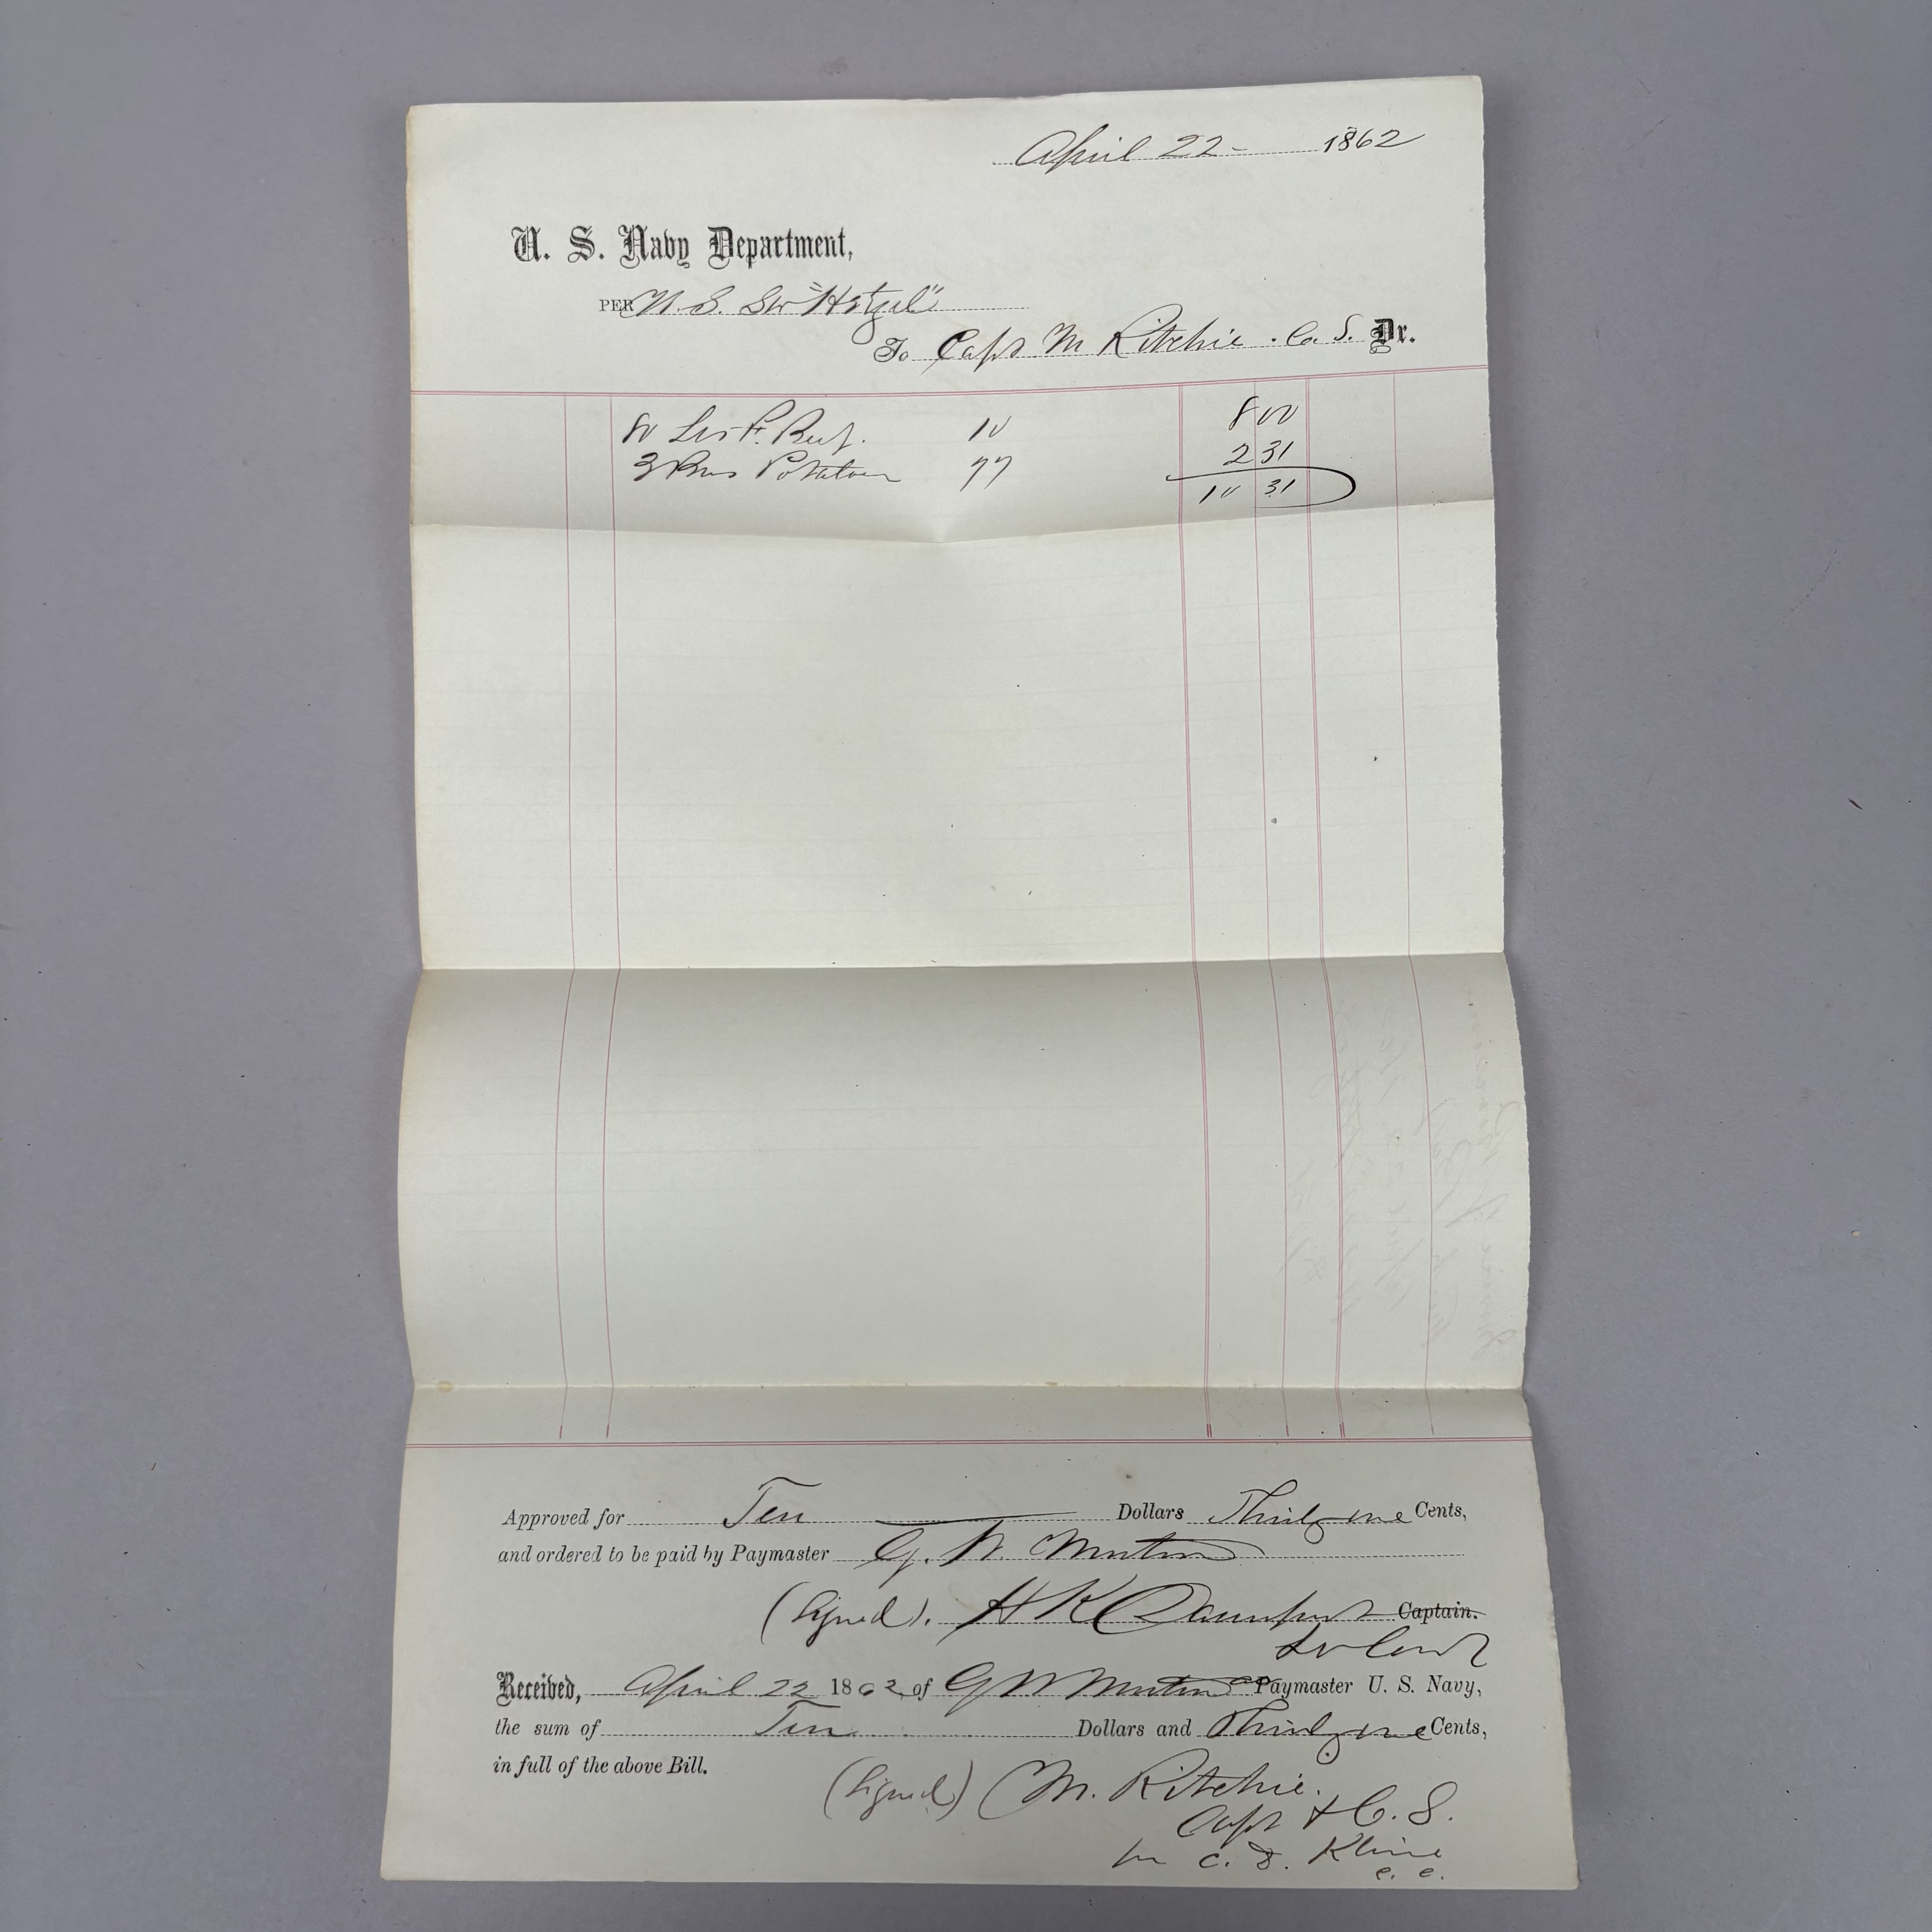 April 22 - 1862
U. S. Navy Department,
PER U. S. Str "Hetzel"
To Capt M Ritchie . C. S. Dr.
80 Lbs F. Beef. 10 8 00
3 Bus Potatoes 77 2 31
10 31
Approved for Ten Dollars Thirty one Cents,
and ordered to be paid by Paymaster G. W. Morton
(Signed). H K Davenport Captain.
Lt Comd
Received, April 22 1862 of G W Morton Paymaster U. S. Navy,
the sum of Ten Dollars and Thirty one Cents,
in full of the above Bill.
(Signed) M. Ritchie.
Capt & C. S.
per C. D. Kline